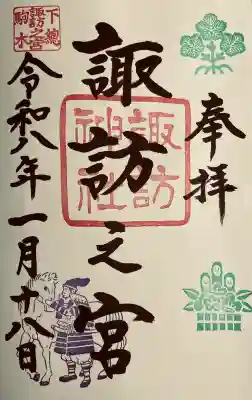 奉拝
諏訪之宮
諏訪
神社
下總
諏訪之宮
駒木
令和八年一月十八日